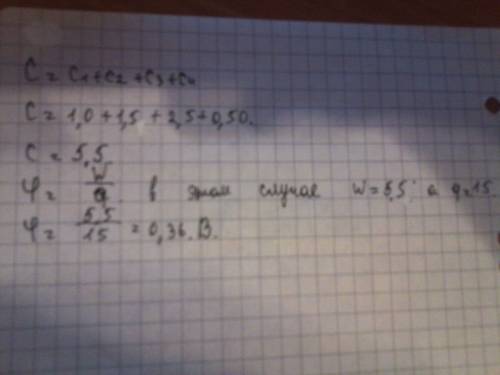 C = C1 + C2 + C3 + C4
C = 1,0 + 1,5 + 2,5 + 0,50.
C = 5,5
φ = W/q в этом случае W = 5,5; а q = 15
φ = 5,5/15 = 0,36. В.